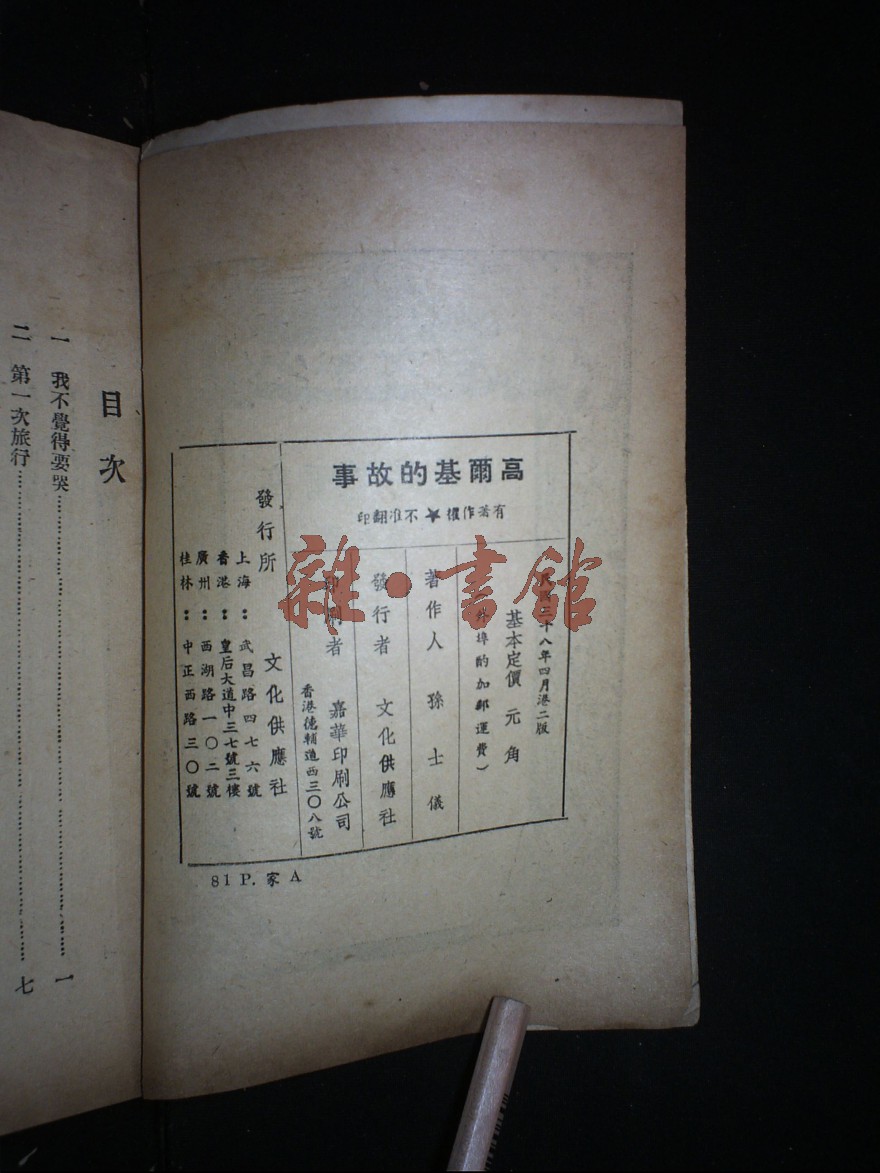 高爾基的故事
有著作權★不准翻印
民國三十八年四月港二版
基本定價 元 角
(外埠酌加郵運費)
著作人 孫士儀
發行者 文化供應社
印刷者 嘉華印刷公司
香港德輔道西三〇八號
發行所 文化供應社
上海：武昌路四七六號
香港：皇后大道中三七號三樓
廣州：西湖路一〇二號
桂林：中正西路三〇號
81 P. 家 A
目次
一 我不覺得要哭……一
二 第一次旅行……七
雜·書館